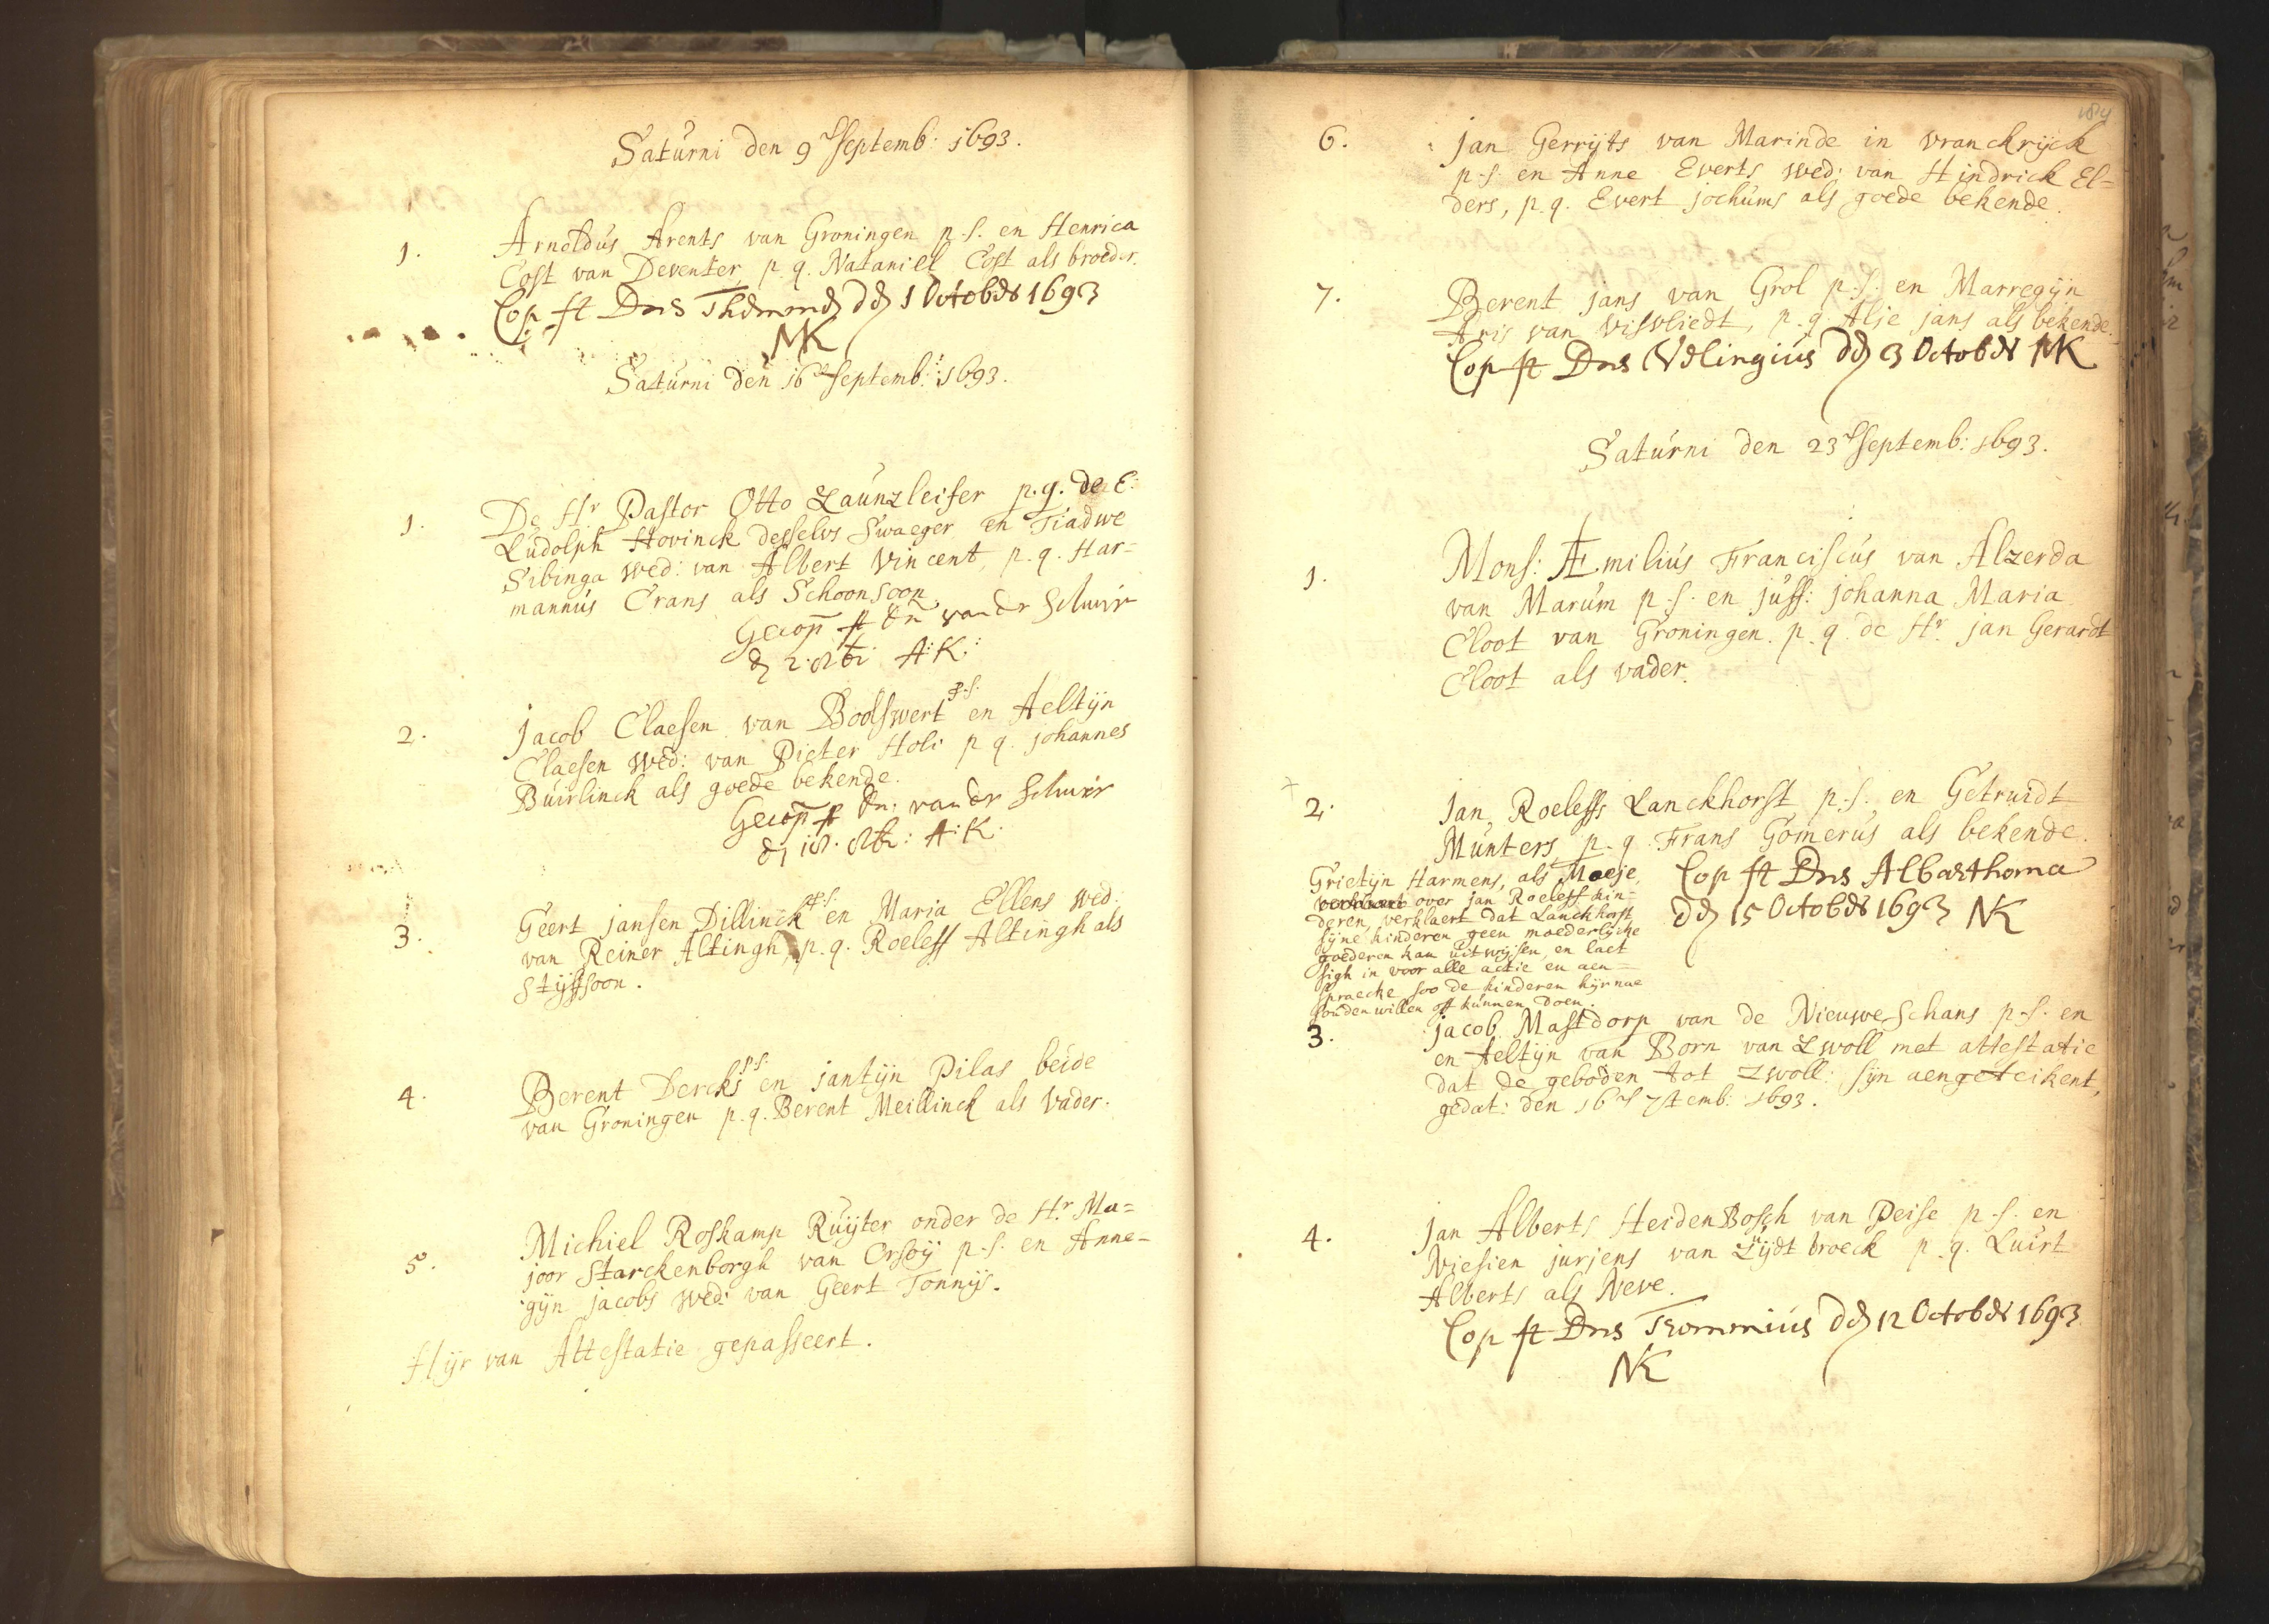 Saturni den 9 Septemb: 1693.
1. Arnoldus Arents van Groningen p.s. en Henrica
Cost van Deventer, p.q. Nataniel Cost als broeder.
Cop ft Dns Themmen dd 1 Octobdr 1693
NK
Saturni den 16 Septemb: 1693.
1. De Hr Pastor Otto Zaunzleifer p.q. de E:
Ludolph Hovinck desselvs Swaeger en Tiadwe
Sibinga wed: van Albert Vincent, p.q. Har=
mannus Crans als Schoonsoon.
Gecop ft dn vander Schuir
d 2. A:K:
2. Jacob Claesen van Boolswert p.s. en Aeltijn
Claesen wed: van Pieter Holi p.q. Johannes
Buirlinck als goede bekende.
Gecop ft dn: vander Schuir
A:K:
3. Geert Jansen Dillinck p.s. en Maria Ellens wed:
van Reiner Altingh, p.q. Roeleff Altingh als
Stijffsoon.
4. Berent Dercks p.s. en Jantijn Pilas beide
van Groningen p.q. Berent Meillinck als vader.
5. Michiel Roskamp Ruijter onder de Hr Ma=
joor Starckenborgh van Orsoij p.s. en Anne=
gijn Jacobs wed: van Geert Tonnijs.
Hijr van Attestatie gepasseert.
184
6. Jan Gerrijts van Marinde in Vranckrijck
p.s. en Anne Everts wed: van Hindrick El=
ders, p.q. Evert Jochums als goede bekende.
7. Berent Jans van Grol p.s. en Marregijn
Aris van Visvliedt, p.q. Alje Jans als bekende.
Cop ft Dns Velingius dd 3 Octobdr NK
Saturni den 23 Septemb: 1693.
1. Mons: Æmilius Franciscus van Alzerda
van Marum p.s. en Juff: Johanna Maria
Cloot van Groningen. p.q. de Hr. Jan Gerardt
Cloot als vader.
2. Jan Roeleffs Lanckhorst p.s. en Getruidt
Munters p.q. Frans Gomerus als bekende.
Cop ft Dns Albarthoma
dd 15 Octobdr 1693 NK
Grietijn Harmens, als Moeje,
over Jan Roeleff kin=
deren, verklaert dat Lanckhorst
sijne kinderen geen moederlijcke
goederen kan uitwijsen, en laet
sigh in voor alle actie en aen=
spraecke soo de kinderen hijr nae
souden willen off kunnen doen.
3. Jacob Mastdorp van de Nieuwe Schans p.s. en
en Aeltijn van Born van Zwoll met attestatie
dat de geboden tot Zwoll: sijn aengeteikent,
gedat: den 16 7temb: 1693.
4. Jan Alberts Heiden Bosch van Peise p.s. en
Wiesien Jurjens van Zuijdt broeck p.q. Luirt
Alberts als Neve.
Cop ft Dns Trommius dd 12 Octobdr 1693
NK